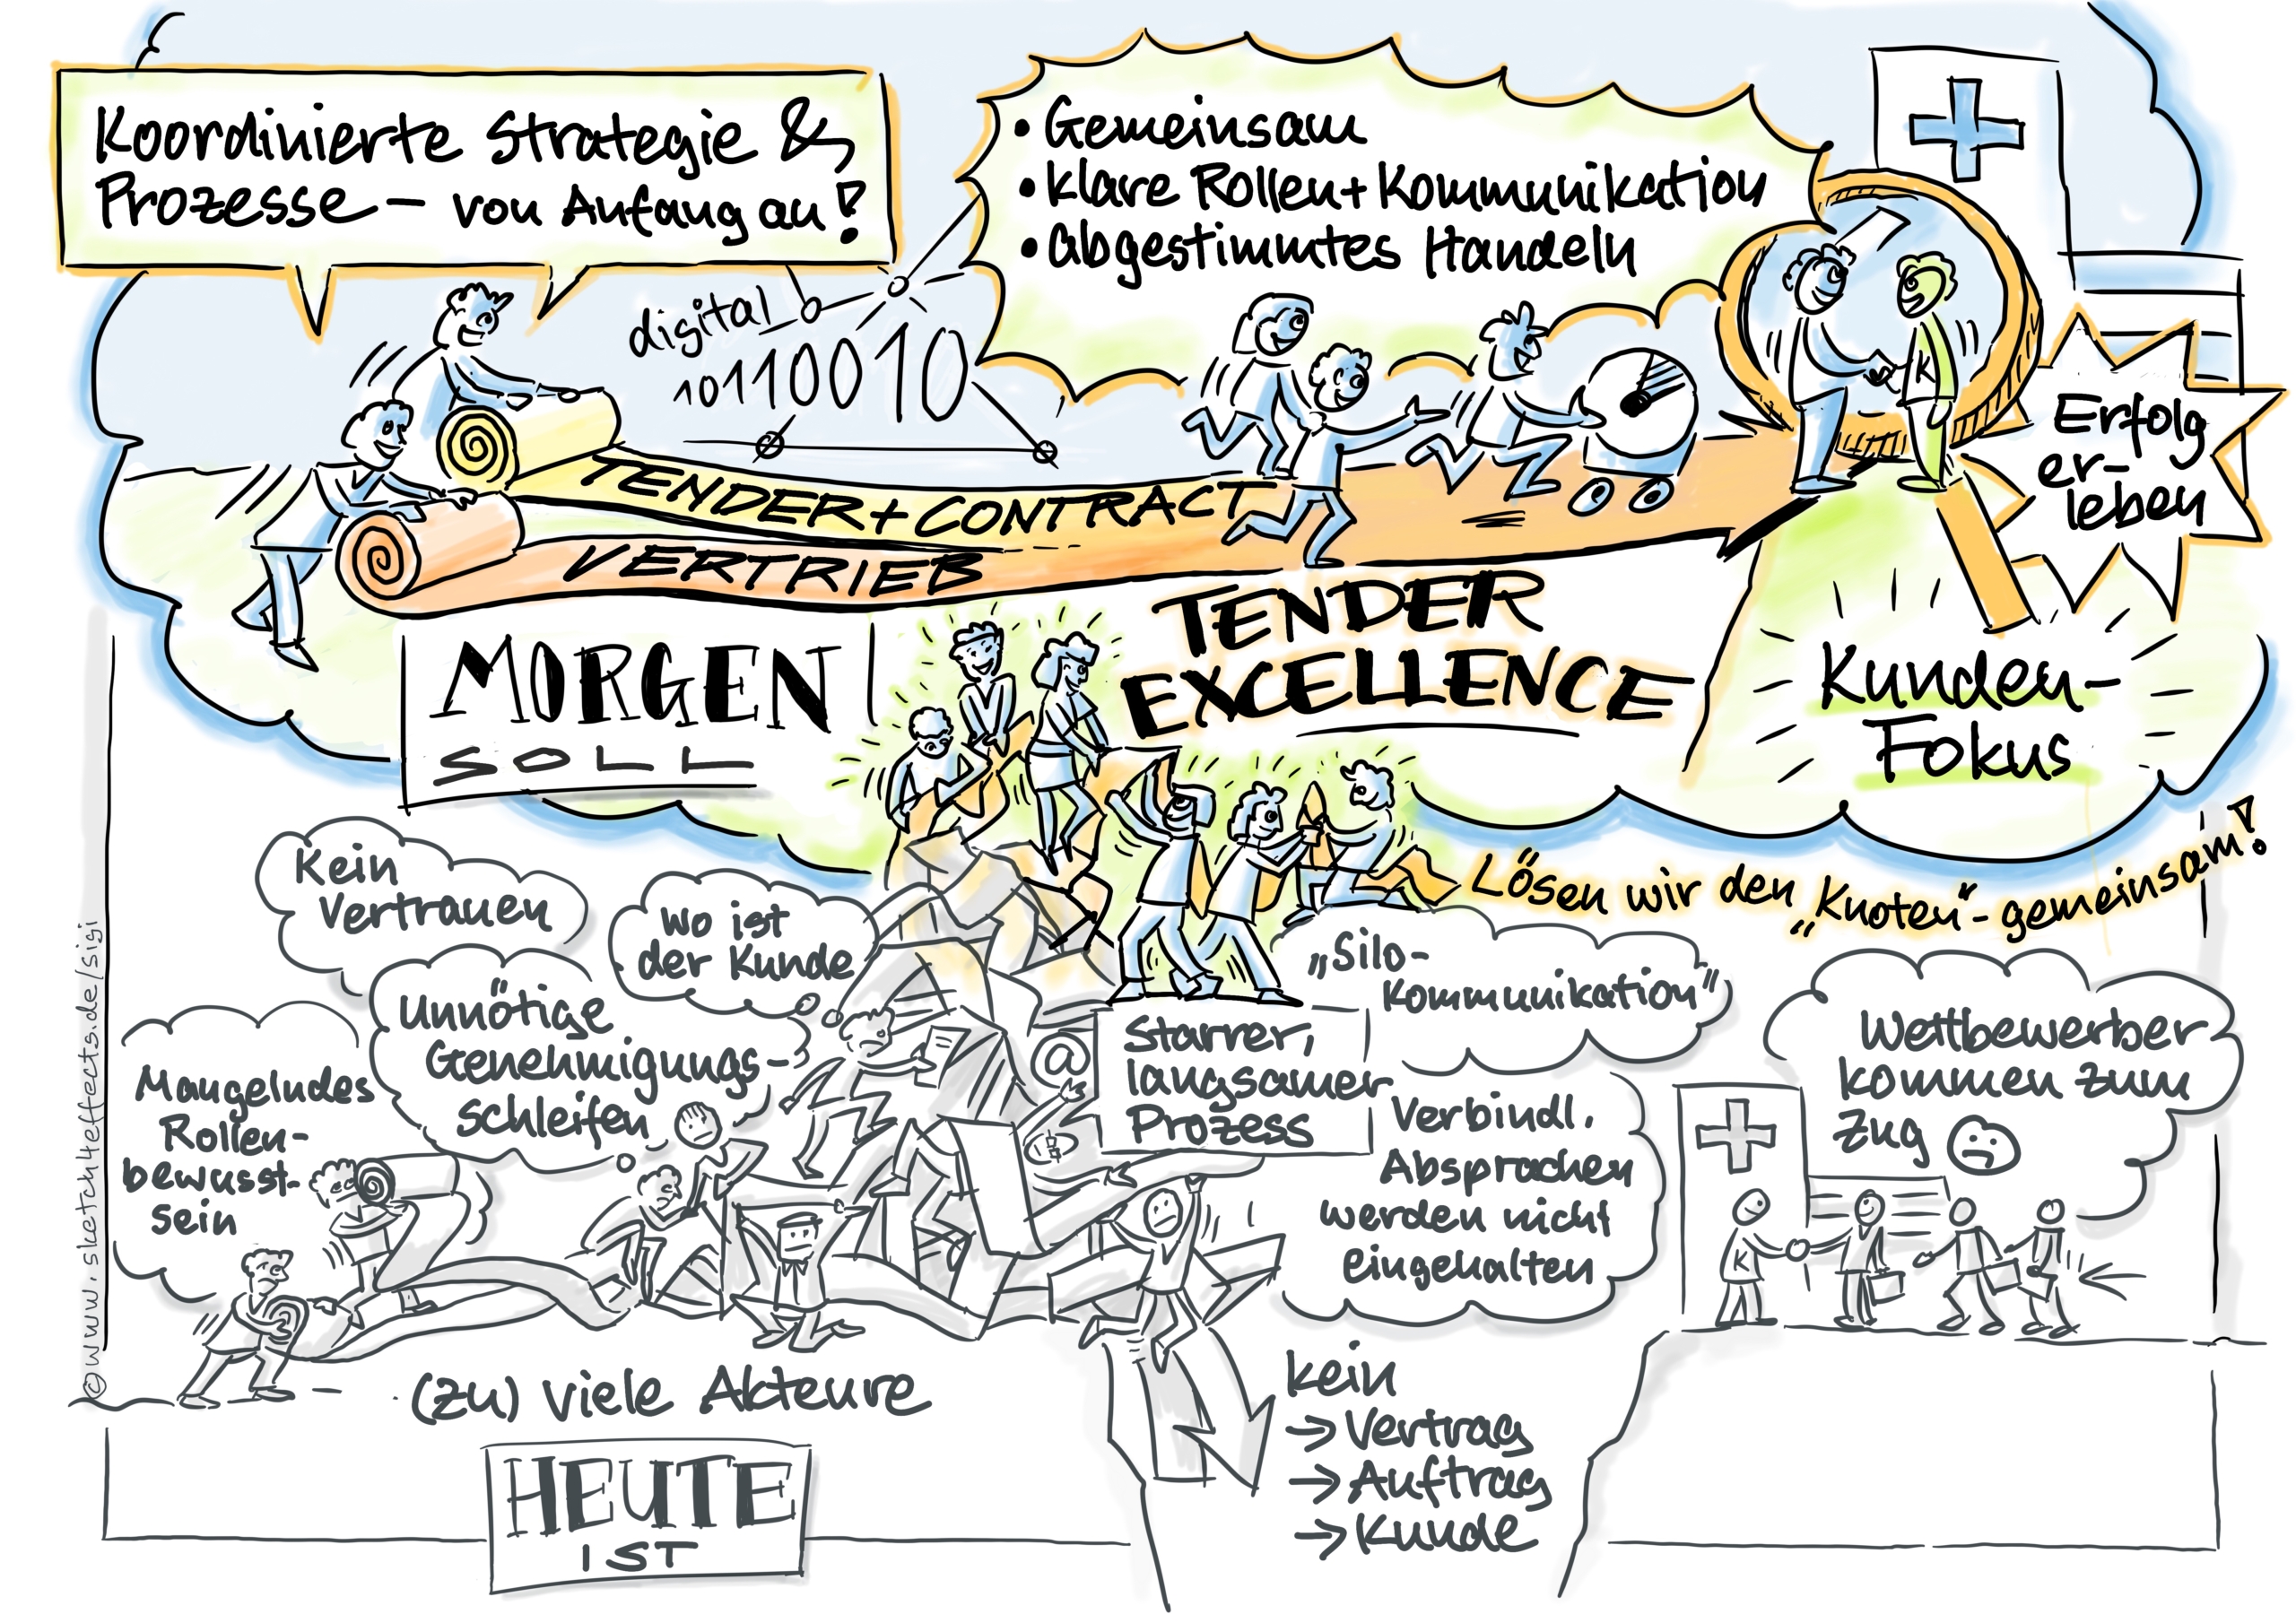 Koordinierte Strategie &
Prozesse – von Anfang an!
• Gemeinsam
• klare Rollen + Kommunikation
• abgestimmtes Handeln
digital
10110010
TENDER + CONTRACT
VERTRIEB
K
Erfolg
er-
leben
MORGEN
SOLL
TENDER
EXCELLENCE
Kunden-
Fokus
Lösen wir den „Knoten“ - gemeinsam!
Kein
Vertrauen
wo ist
der Kunde
Unnötige
Genehmigungs-
schleifen
Mangelndes
Rollen-
bewusst-
sein
@
Starrer,
langsamer
Prozess
„Silo-
Kommunikation“
Verbindl.
Absprachen
werden nicht
eingehalten
Wettbewerber
kommen zum
Zug
K
(zu) viele Akteure
kein
→ Vertrag
→ Auftrag
→ Kunde
HEUTE
IST
© www.sketch4effects.de/sigi